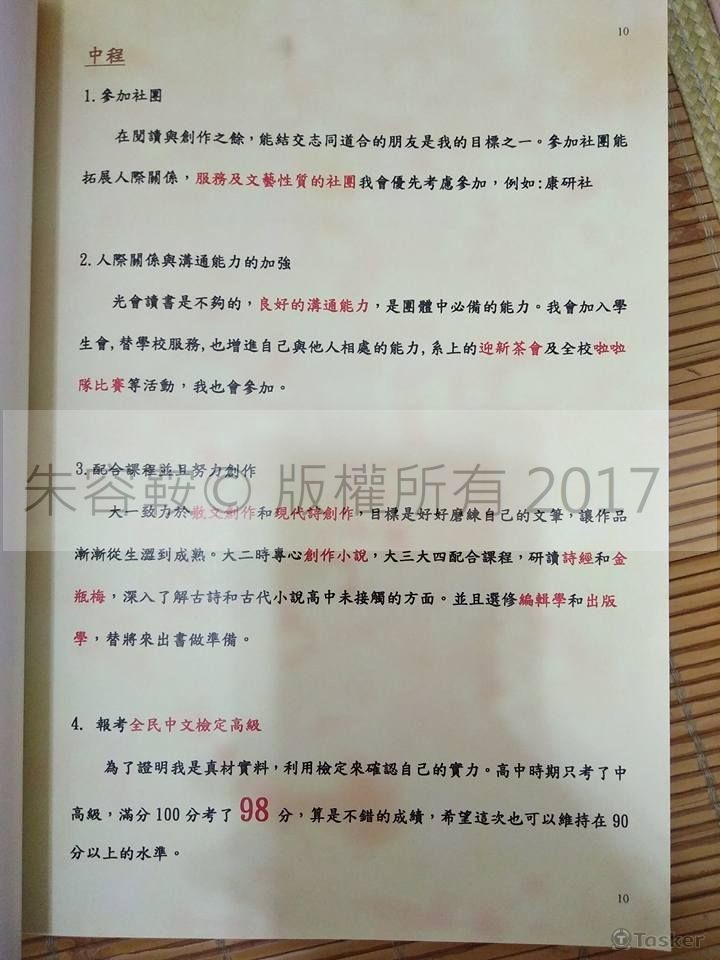 10
中程
1.參加社團
在閱讀與創作之餘，能結交志同道合的朋友是我的目標之一。參加社團能
拓展人際關係，服務及文藝性質的社團我會優先考慮參加，例如:康研社
2.人際關係與溝通能力的加強
光會讀書是不夠的，良好的溝通能力，是團體中必備的能力。我會加入學
生會,替學校服務,也增進自己與他人相處的能力,系上的迎新茶會及全校啦啦
隊比賽等活動，我也會參加。
3.配合課程並且努力創作
朱容鞍© 版權所有 2017
大一致力於散文創作和現代詩創作，目標是好好磨練自己的文筆，讓作品
漸漸從生澀到成熟。大二時專心創作小說，大三大四配合課程，研讀詩經和金
瓶梅，深入了解古詩和古代小說高中未接觸的方面。並且選修編輯學和出版
學，替將來出書做準備。
4. 報考全民中文檢定高級
為了證明我是真材實料，利用檢定來確認自己的實力。高中時期只考了中
高級，滿分100分考了98分，算是不錯的成績，希望這次也可以維持在90
分以上的水準。
10
Tasker